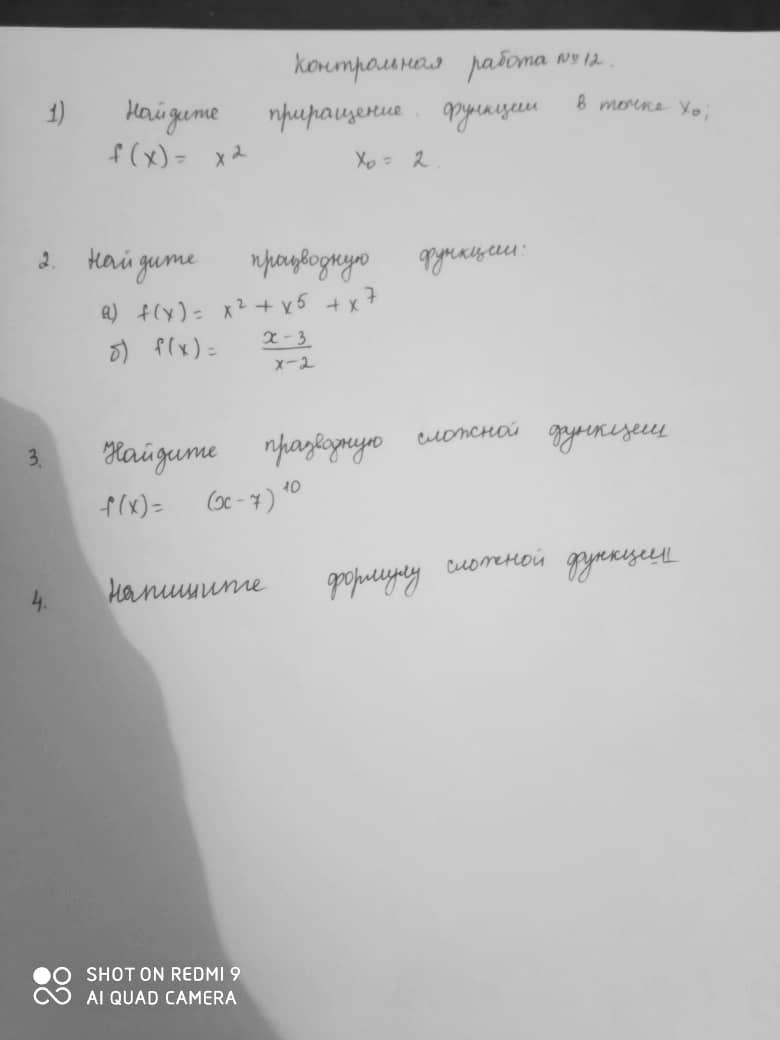 Контрольная работа №12.
1) Найдите приращение функции в точке x₀;
f(x) = x² x₀ = 2.
2. Найдите працводную функции:
а) f(x) = x² + x⁵ + x⁷
б) f(x) = (x-3)/(x-2)
3. Найдите празводную сложной функции
f(x) = (x-7)¹⁰
4. Напишите формулу сложной функции
SHOT ON REDMI 9
AI QUAD CAMERA